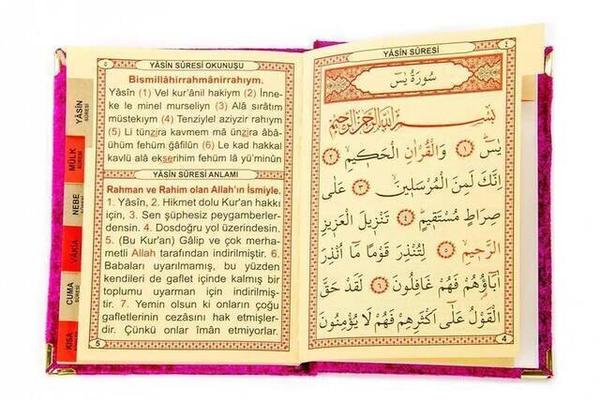 YÂSİN SÛRESİ
٤
سورة يس
بسم الله الرحمن الرحيم
يس ﴿١﴾ وَالْقُرْاٰنِ الْحَكٖيمِ ﴿٢﴾
اِنَّكَ لَمِنَ الْمُرْسَلٖينَ ﴿٣﴾ عَلٰى
صِرَاطٍ مُسْتَقٖيمٍ ﴿٤﴾ تَنْزٖيلَ الْعَزٖيزِ
الرَّحٖيمِ ﴿٥﴾ لِتُنْذِرَ قَوْمًا مَا اُنْذِرَ
اٰبَاؤُهُمْ فَهُمْ غَافِلُونَ ﴿٦﴾ لَقَدْ حَقَّ
الْقَوْلُ عَلٰى اَكْثَرِهِمْ فَهُمْ لَا يُؤْمِنُونَ
4
٥
YÂSİN SÛRESİ OKUNUŞU
Bismillâhirrahmânirrahıym.
Yâsîn (1) Vel kur'ânil hakiym (2) İnne-
ke le minel murseliyn (3) Alâ sırâtım
müstekıym (4) Tenziylel aziyzir rahıym
(5) Li tünzira kavmem mâ ünzira âbâ-
ühüm fehüm ğâfilûn (6) Le kad hakkal
kavlü alâ ekserihim fehüm lâ yü'minûn
YÂSİN SÛRESİ ANLAMI
Rahman ve Rahim olan Allah'ın İsmiyle.
1. Yâsîn, 2. Hikmet dolu Kur'an hakkı
için, 3. Sen şüphesiz peygamberler-
densin. 4. Dosdoğru yol üzerindesin.
5. (Bu Kur'an) Gâlip ve çok merha-
metli Allah tarafından indirilmiştir. 6.
Babaları uyarılmamış, bu yüzden
kendileri de gaflet içinde kalmış bir
toplumu uyarman için indirilmiş-
tir. 7. Yemin olsun ki onların çoğu
gafletlerinin cezasını hak etmişler-
dir. Çünkü onlar îmân etmiyorlar.
5
YÂSİN
SÛRESİ
MÜLK
SÛRESİ
NEBE
SÛRESİ
VÂKIA
CUMA
SÛRESİ
KISA